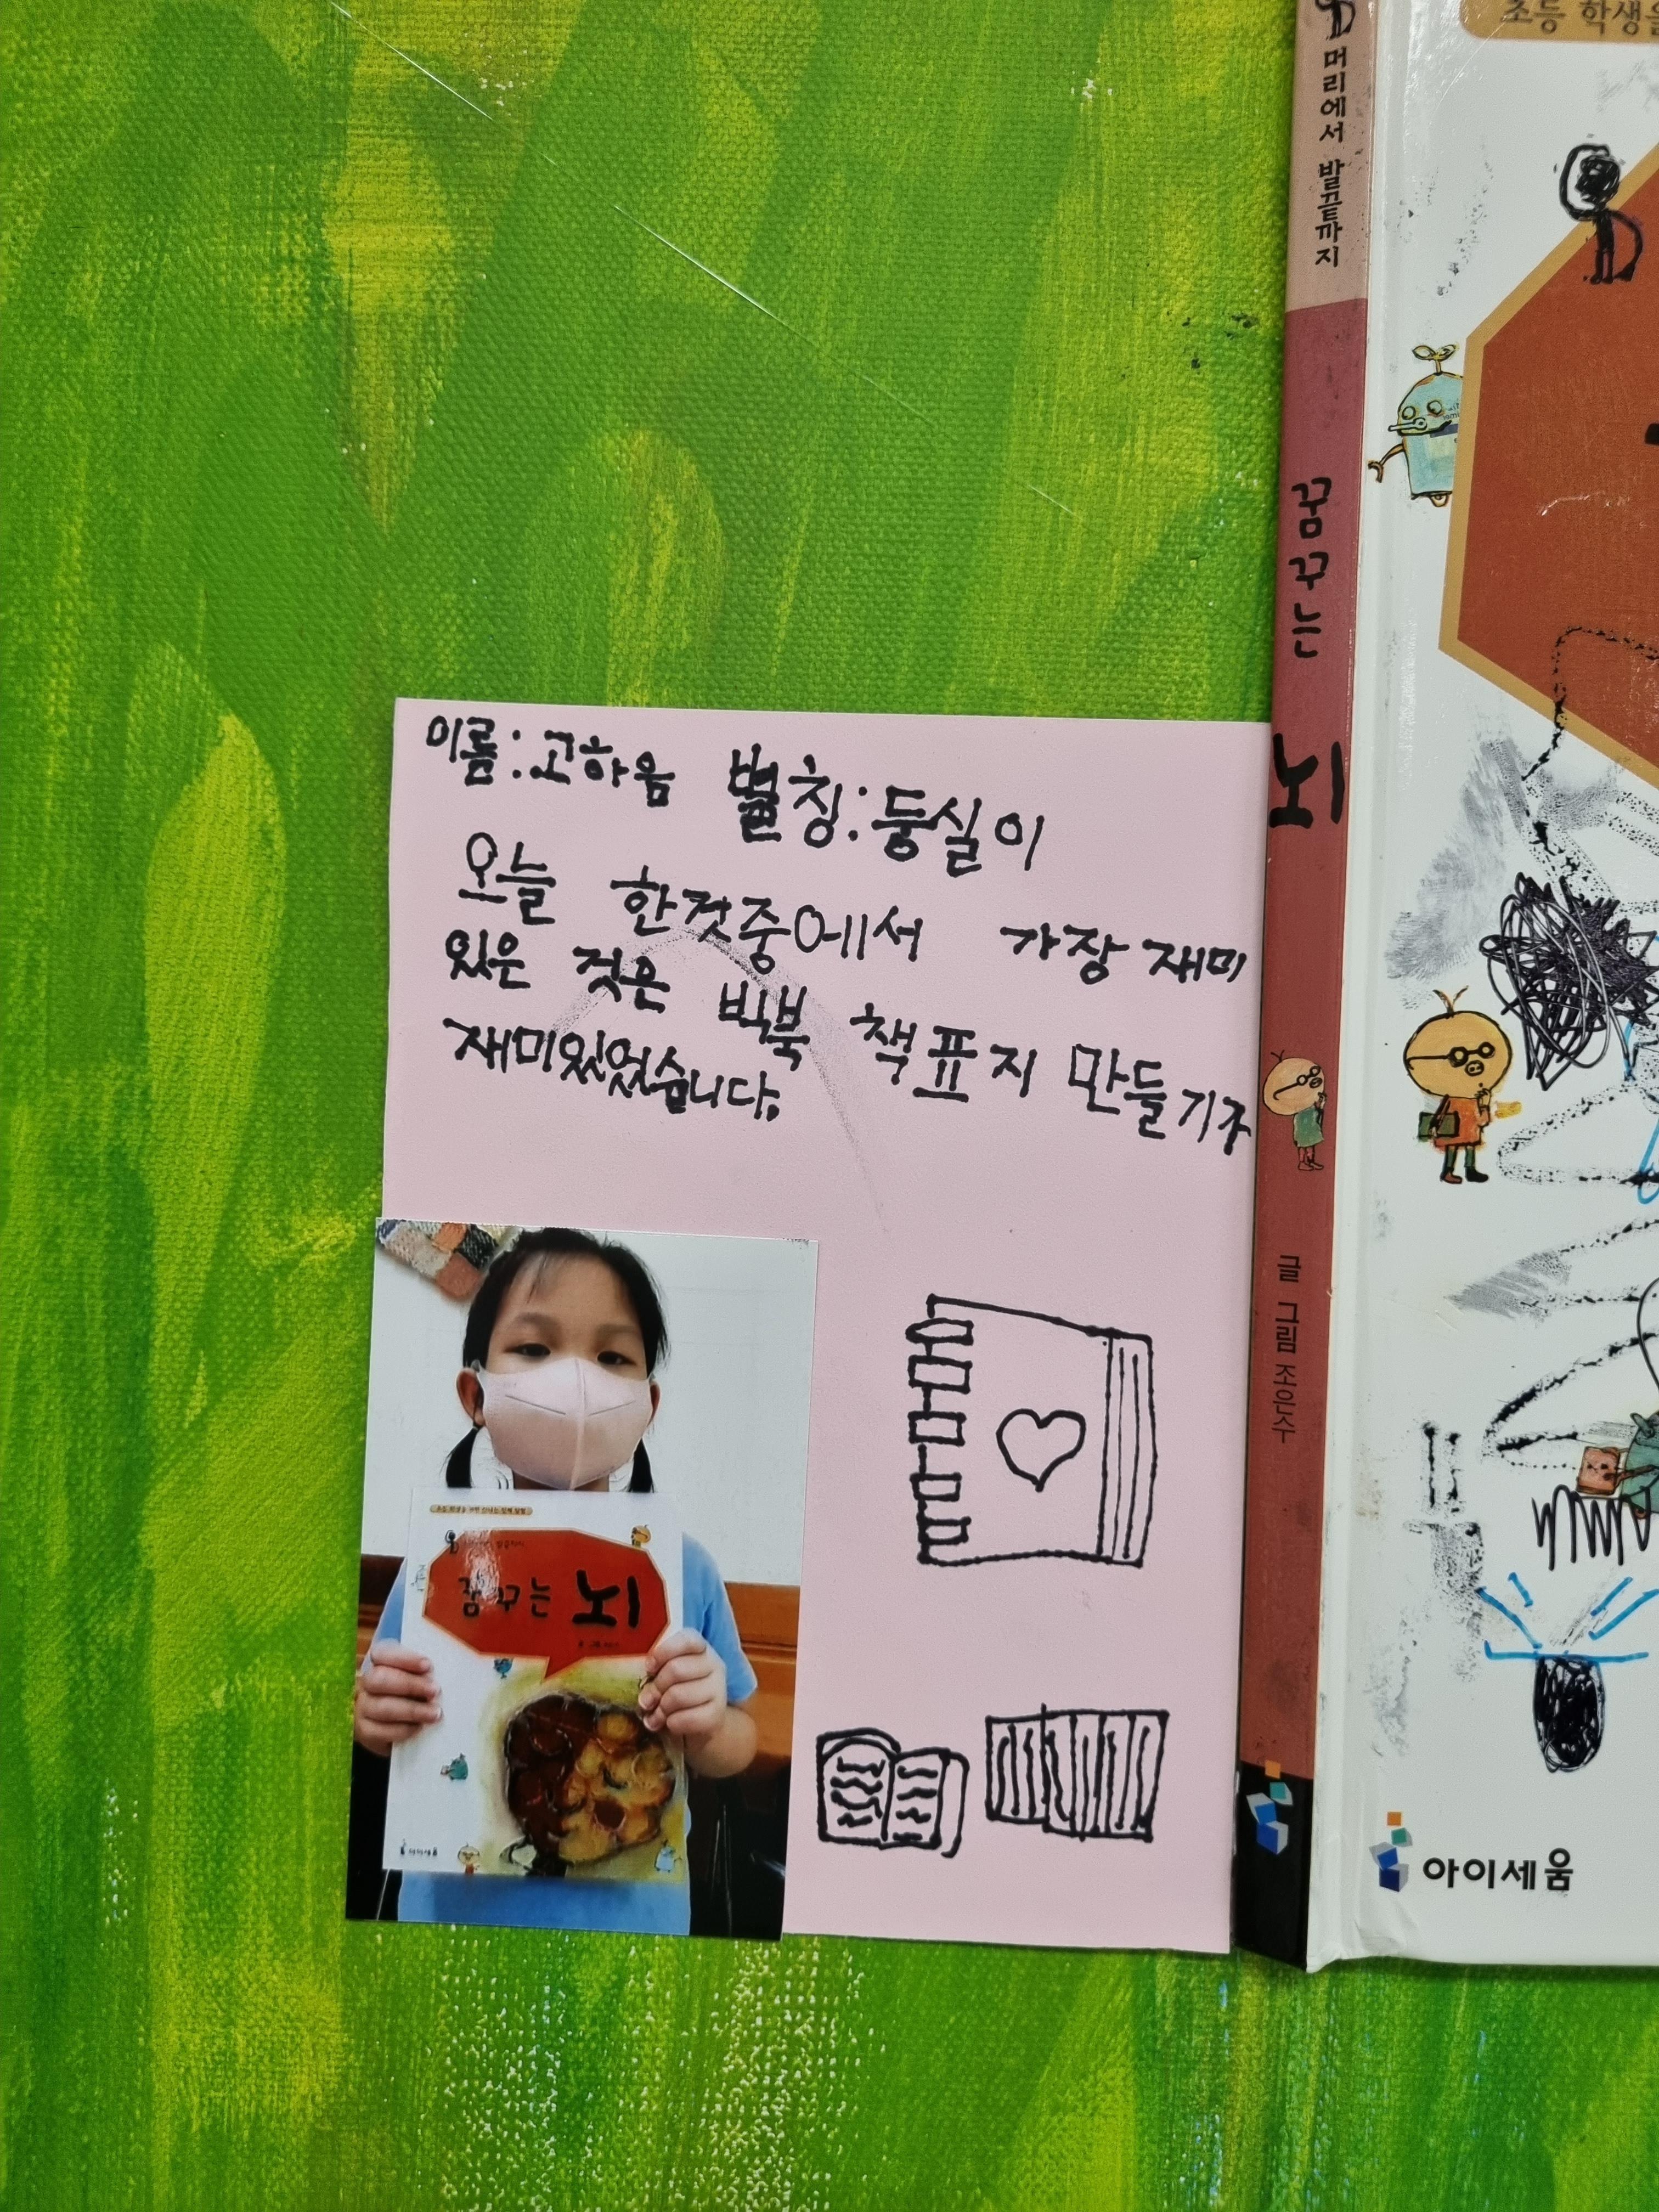 이름:고하음 별칭:둥실이
오늘 한것중에서 가장 재미
있은 것은 빅북 책 표지 만들기가
재미있었습니다.
꿈꾸는 뇌
아이세움
머리에서 발끝까지
꿈꾸는 뇌
글 그림 조은수
초등 학생을
아이세움